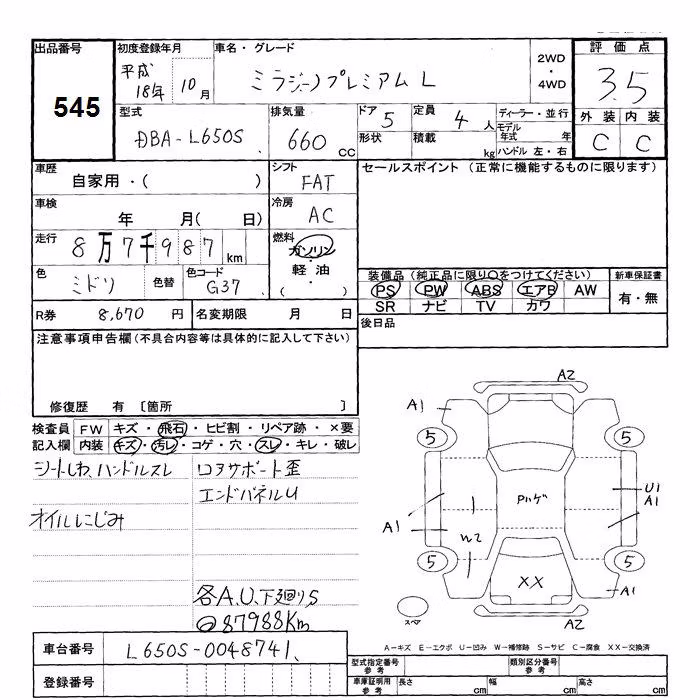 出品番号 初度登録年月 車名・グレード 評価点
545 平成18年10月 ミラジーノプレミアムL 2WD・4WD 3.5
型式 排気量 ドア 定員 ディーラー・並行 外装 内装
DBA-L650S 660cc 5 4人 モデル年式 年 C C
形状 積載 kg ハンドル 左・右
車歴 シフト セールスポイント (正常に機能するものに限ります)
自家用・( ) FAT
車検 冷房
年 月( 日) AC
走行 燃料
8万7千987km ガソリン・軽油・( )
色 色替 色コード 装備品(純正品に限り○をつけてください) 新車保証書
ミドリ G37 PS PW ABS エアB AW 有・無
SR ナビ TV カワ
R券 8,670円 名変期限 月 日 後日品
注意事項申告欄(不具合内容等は具体的に記入して下さい)
修復歴 有 〔箇所 〕
検査員 FW キズ・飛石・ヒビ割・リペア跡・×要
記入欄 内装 キズ・汚レ・コゲ・穴・スレ・キレ・破レ
シートしわ、ハンドルスレ コアサポート歪
エンドパネルU
オイルにじみ
各A.U.下廻りS
@87988Km
A2
A1 A2
5 5
Pハゲ
U1
A1 A1
W2
5 5
XX
A1
スペア
A-キズ E-エクボ U-凹み W-補修跡 S-サビ C-腐食 XX-交換済
車台番号 L650S-0048741
型式指定番号 参考 類別区分番号 参考
登録番号 車庫証明用 参考 長さ cm 幅 cm 高さ cm